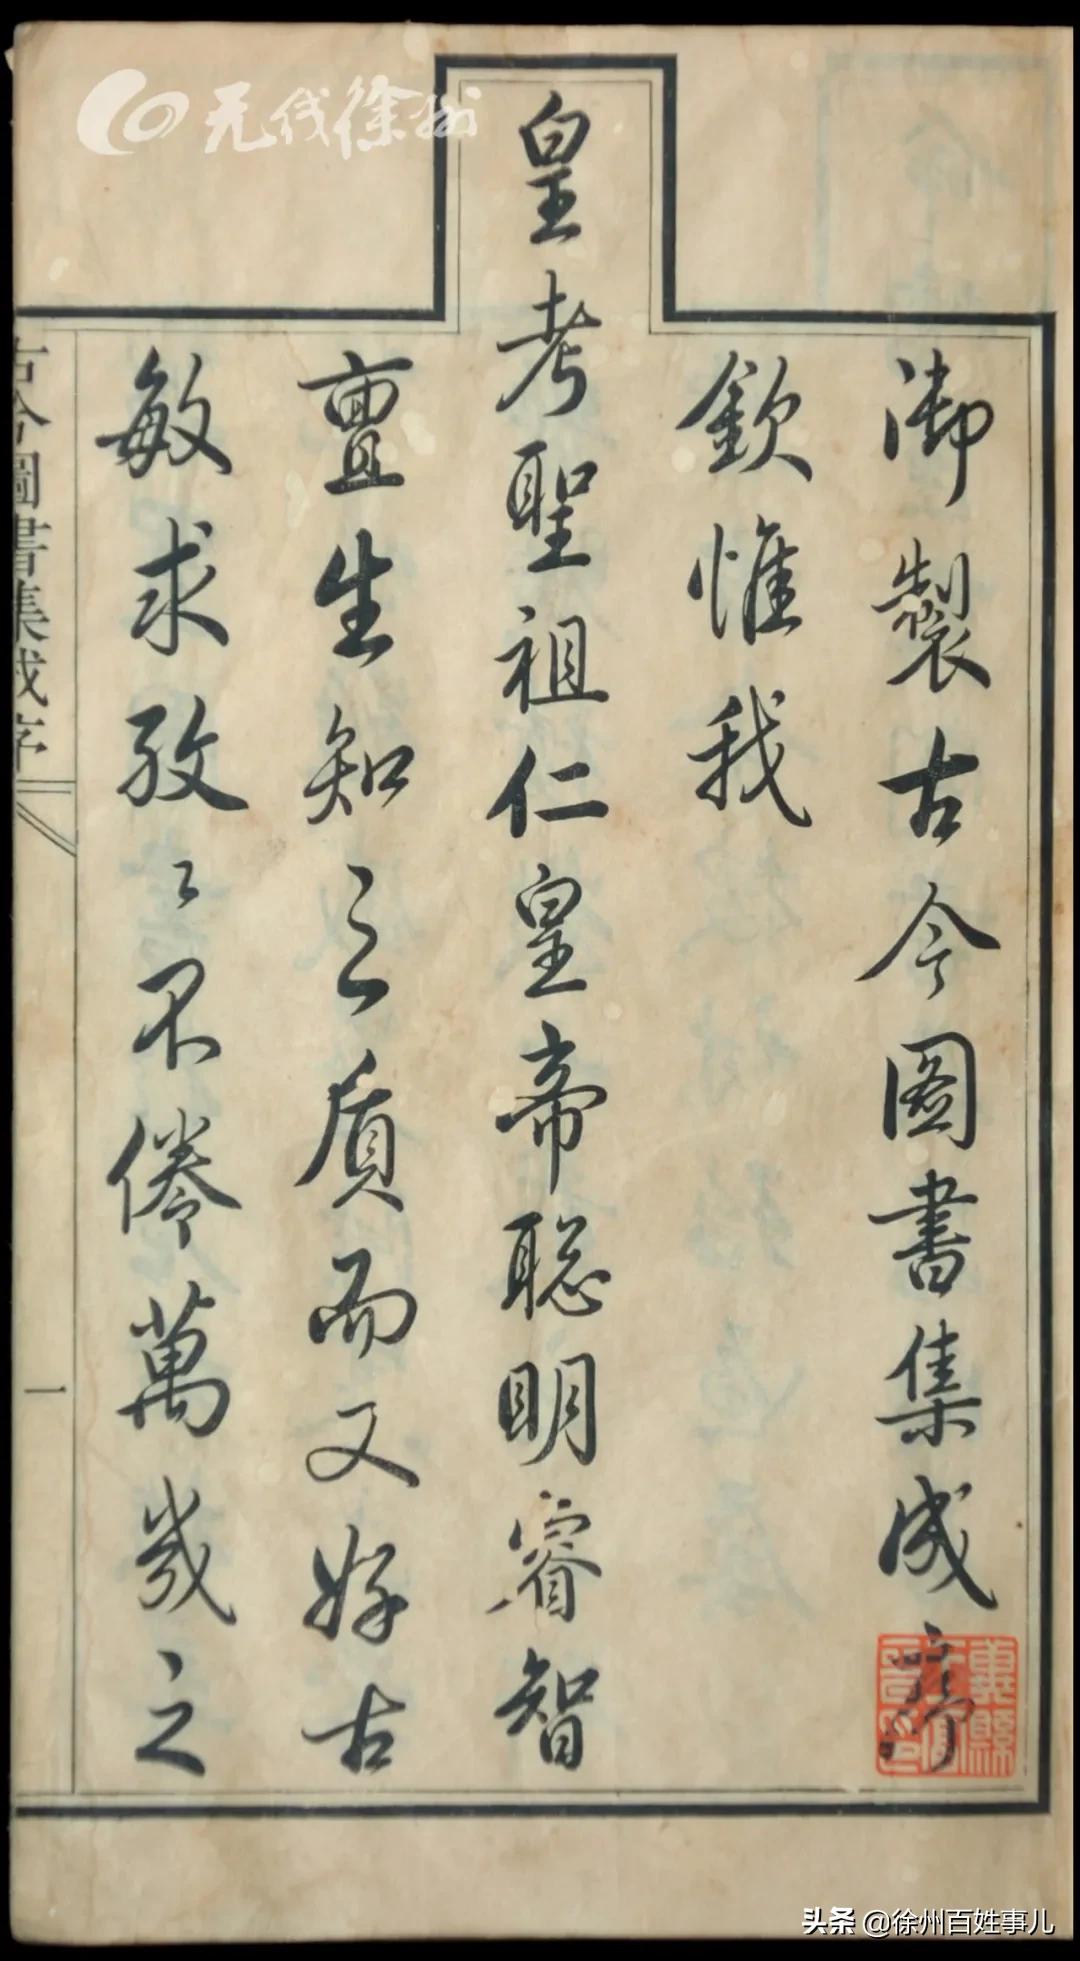 御製古今圖書集成序
欽惟我
皇考聖祖仁皇帝聰明睿智
亶生知之質而又好古
敏求孜〻不倦萬幾之
古今圖書集成序
一
无线徐州
头条 @徐州百姓事儿